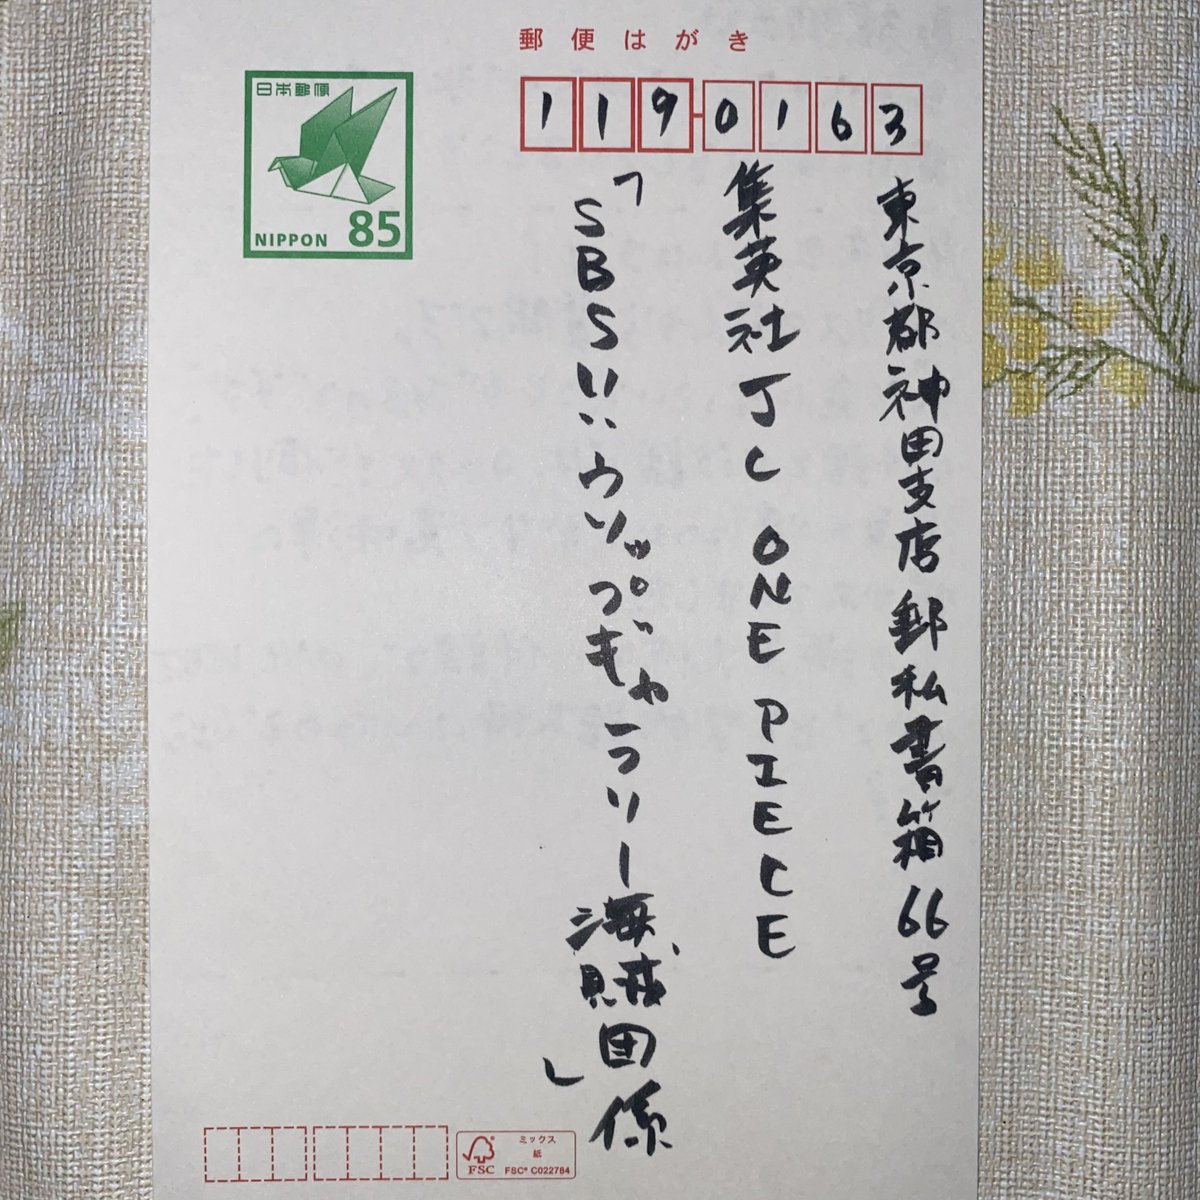 郵便はがき
日本郵便
NIPPON 85
1190163
東京都神田支店郵私書箱66号
集英社JC ONE PIECE
「SBSいいウソップギャラリー海賊団係」
ミックス
紙
FSC
FSC® C022784